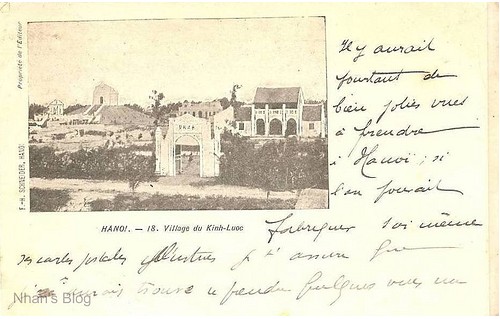 Propriété de l'Editeur
F.-H. SCHNEIDER, HANOI
HANOI. — 18. Village du Kinh-Luoc
Il y aurait
pourtant de
bien jolies vues
à prendre
à Hanoï ; si
l'on pouvait
fabriquer soi même
ses cartes postales illustrées je t'assure que
j'aurais trouvé à prendre quelques vues
Nhan's Blog